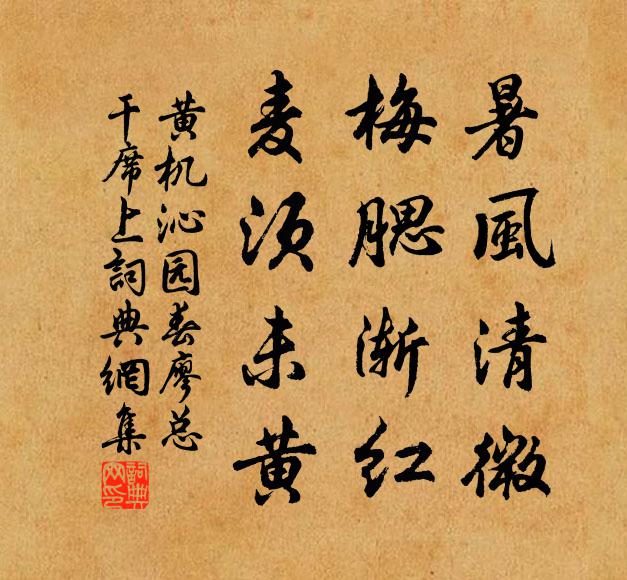 暑風清微
梅腮渐红
麦须未黄
黄机沁园春廖总
干席上詞典網集
詞典網印